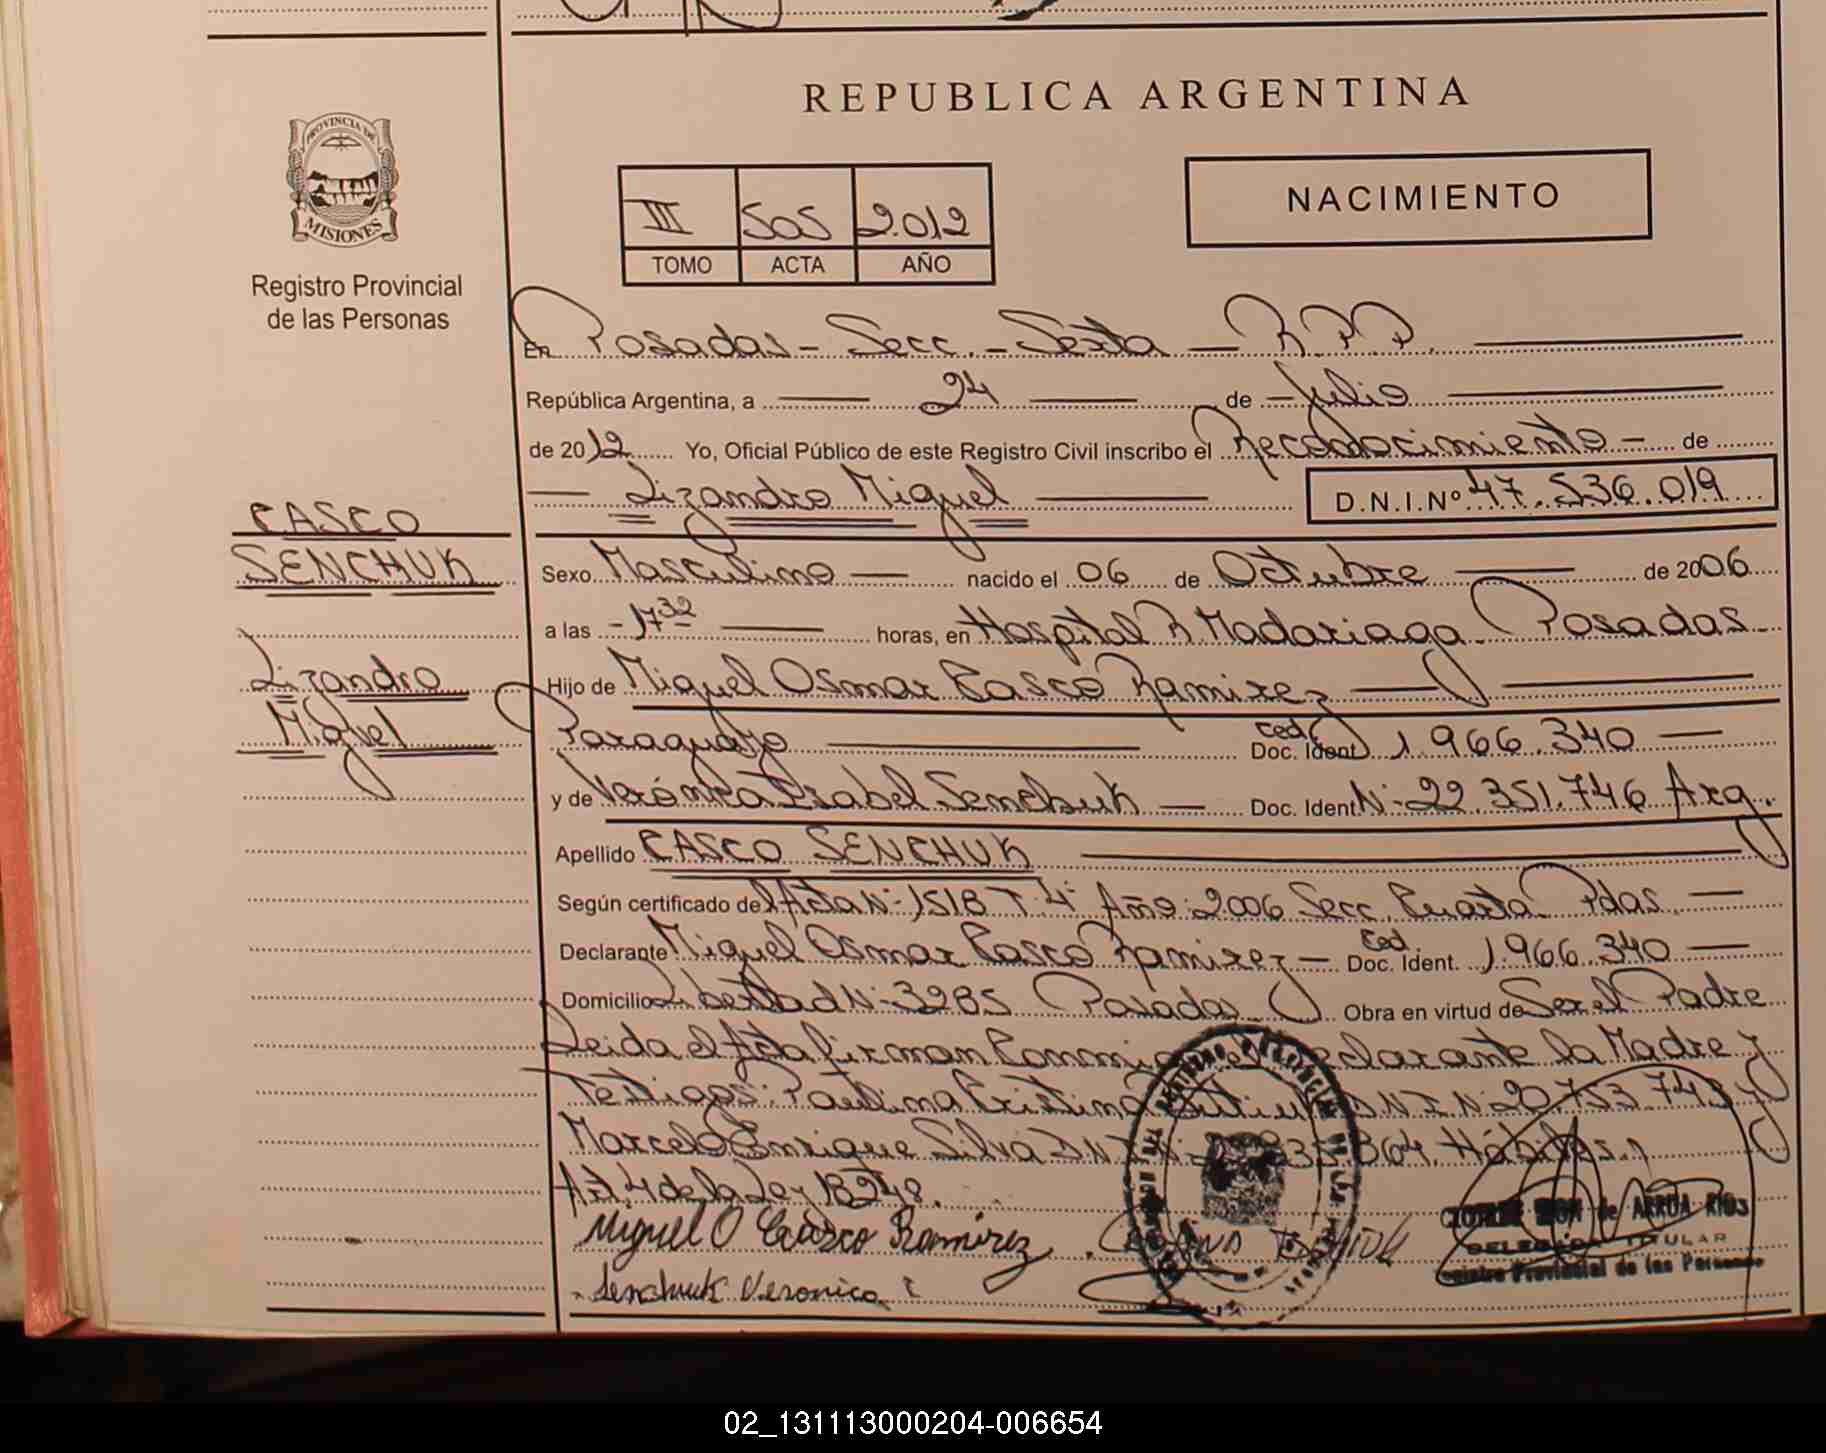 REPUBLICA ARGENTINA
PROVINCIA DE
MISIONES
Registro Provincial
de las Personas
NACIMIENTO
III 505 2.012
TOMO ACTA AÑO
En Posadas - Secc. - Sexta - R.P.P.
República Argentina, a 24 de Julio
de 2012 Yo, Oficial Público de este Registro Civil inscribo el Reconocimiento - de
Lizandro Miguel D.N.I.Nº 47.536.019
CASCO
SENCHUK
Lizandro
Miguel
Sexo Masculino nacido el 06 de Octubre de 2006
a las - 17 32 horas, en Hospital R. Madariaga - Posadas -
Hijo de Miguel Osmar Casco Ramirez
Paraguayo Ced. Doc. Ident. 1.966.340
y de Verónica Isabel Senchuk Doc. Ident. N- 22.351.746 Arg.
Apellido CASCO SENCHUK
Según certificado del Acta N- 1518 T. 4° Año 2006 Secc. Cuarta Pdas.
Declarante Miguel Osmar Casco Ramirez - Ced. Doc. Ident. 1.966.340
Domicilio Libertad N- 3285 Posadas Obra en virtud de Ser el Padre
Leida el Acta firman Conmigo el Declarante la Madre y
Testigos: Paulina Cristina D N I N- 20.753.743 y
Marcelo Enrique Silva D N I N- 364. Hábiles.
Art. 4 de la Ley 18248.
Miguel O Casco Ramirez
Senchuk Veronica I
de ARRUA RIOS
DELEGADA TITULAR
Registro Provincial de las Personas
02_131113000204-006654